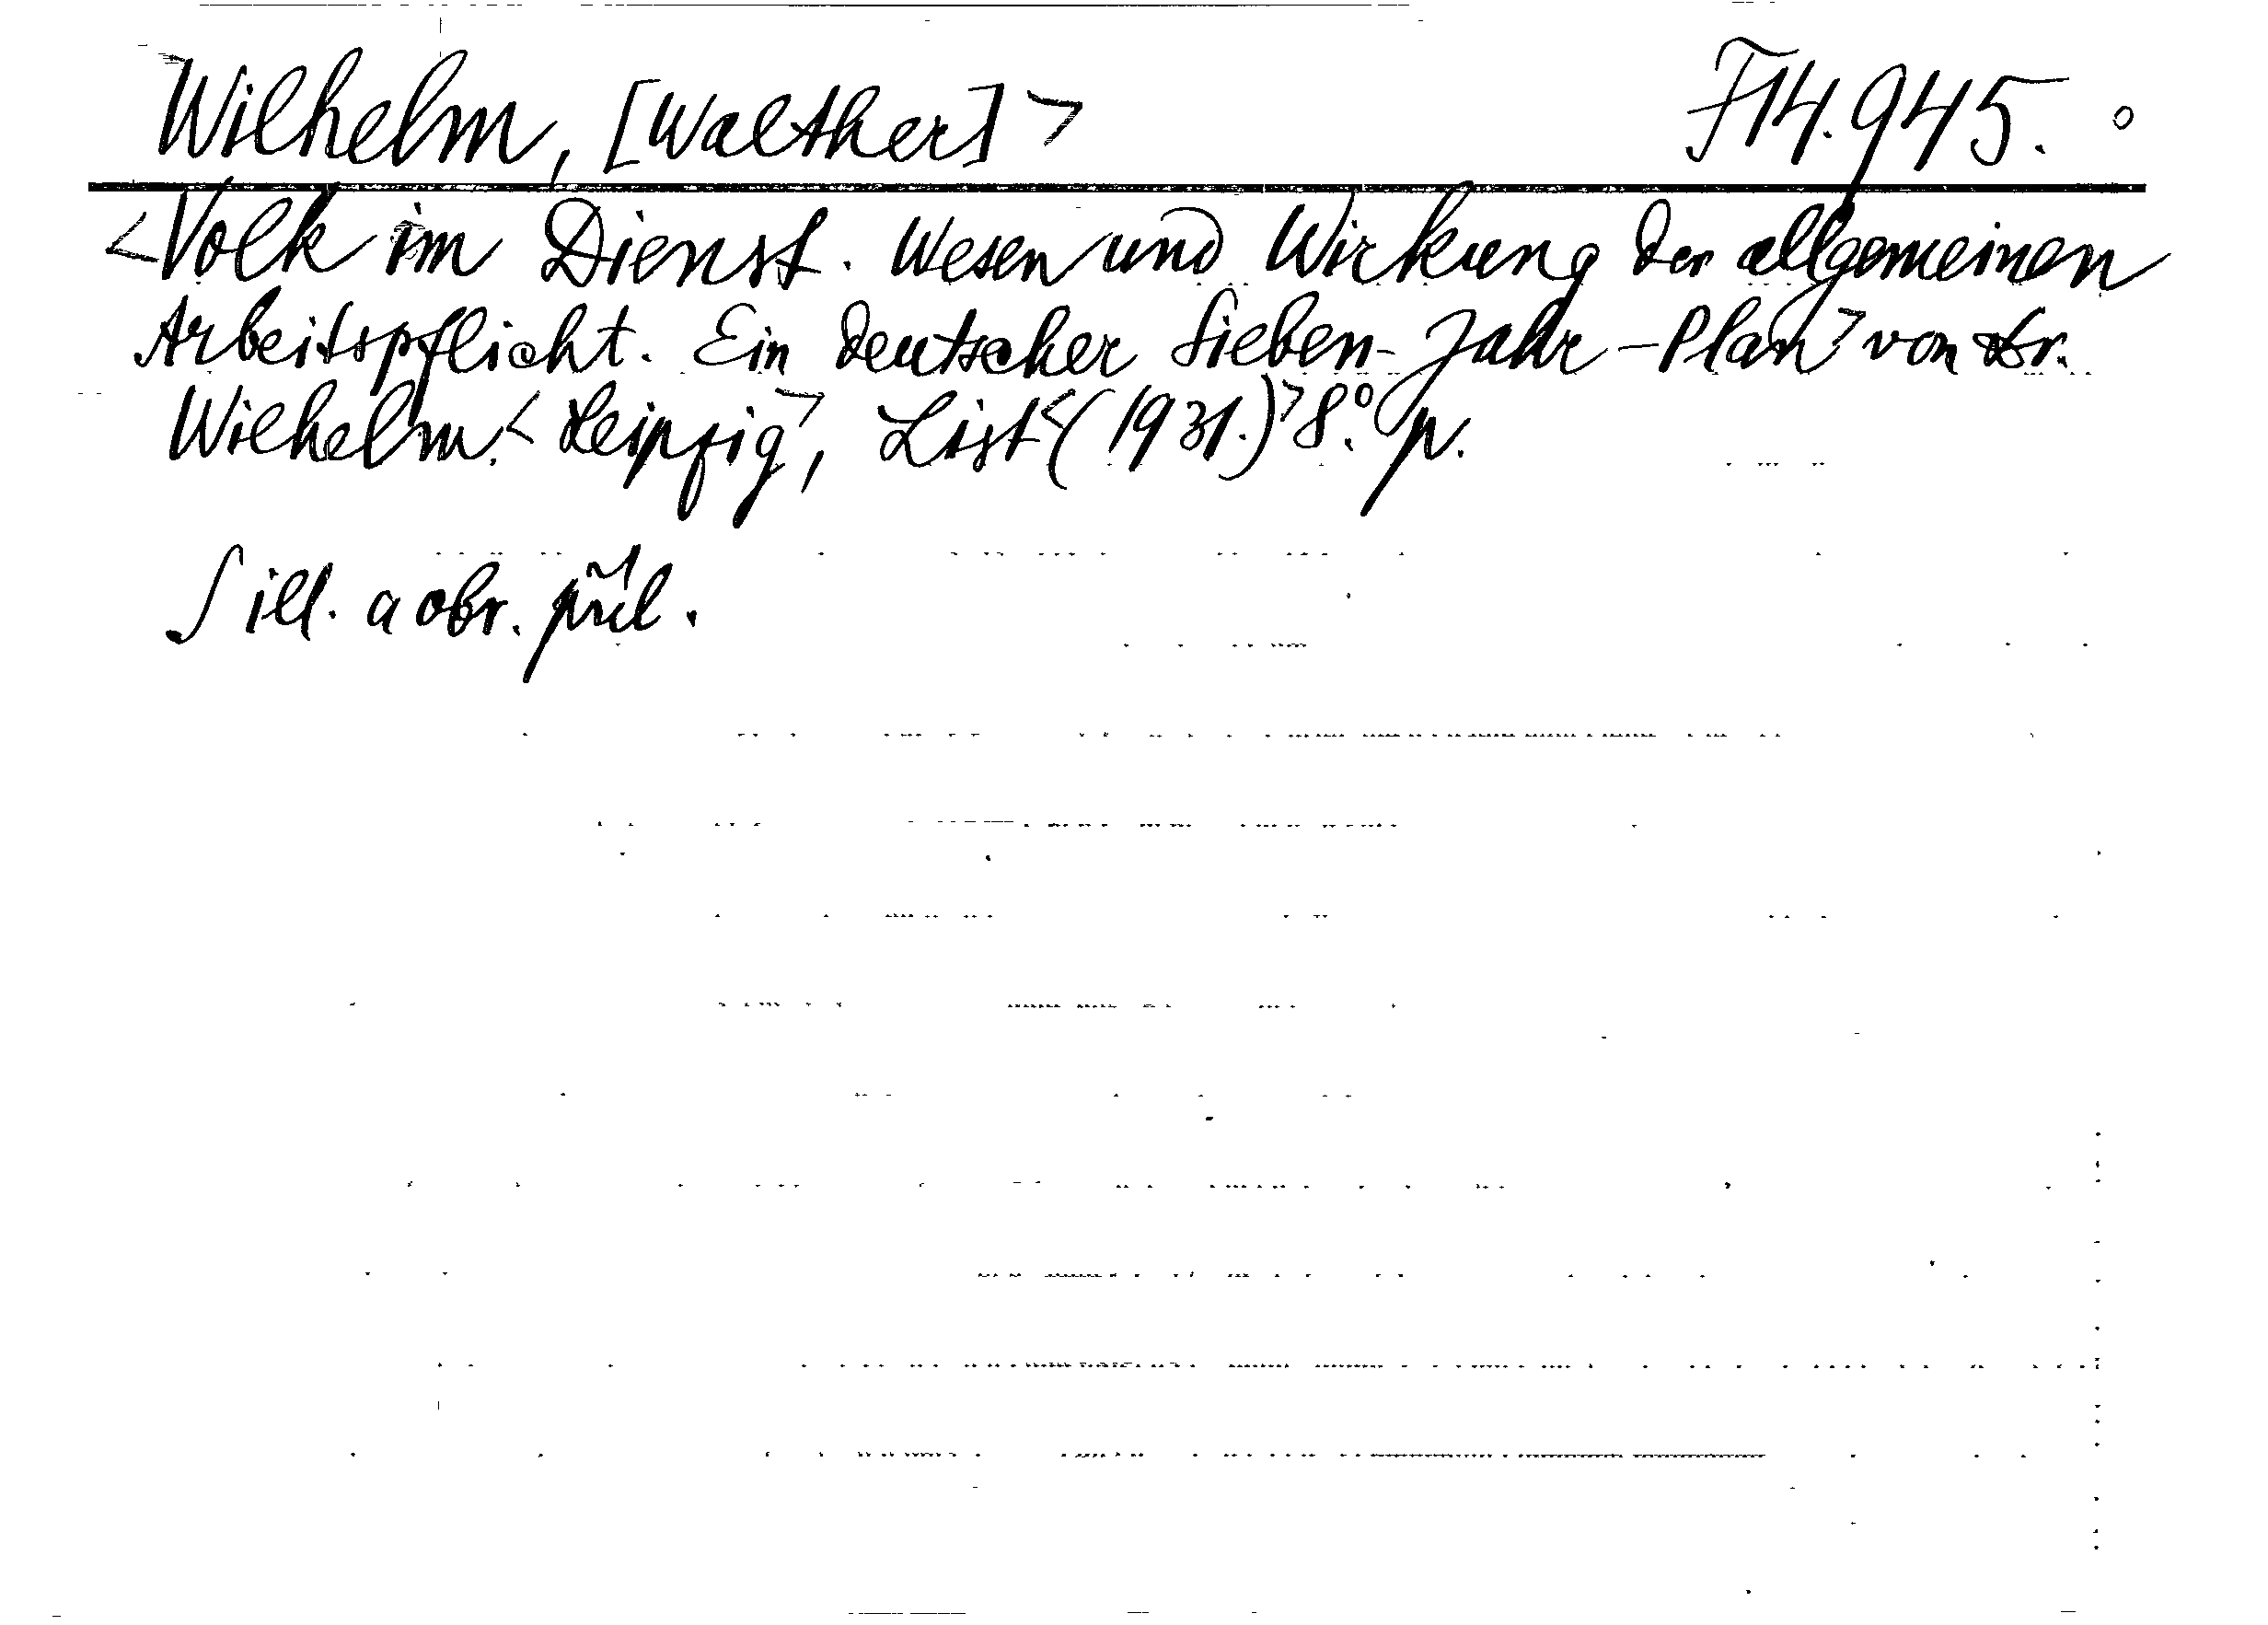 Wilhelm, [Walther]> F14.945.°
<Volk im Dienst. Wesen und Wirkung der allgemeinen
Arbeitspflicht. Ein deutscher Sieben-Jahr-Plan> von Dr.
Wilhelm.< Leipzig>, List<(1931.)>8°. p.
S ill. a obr. příl.